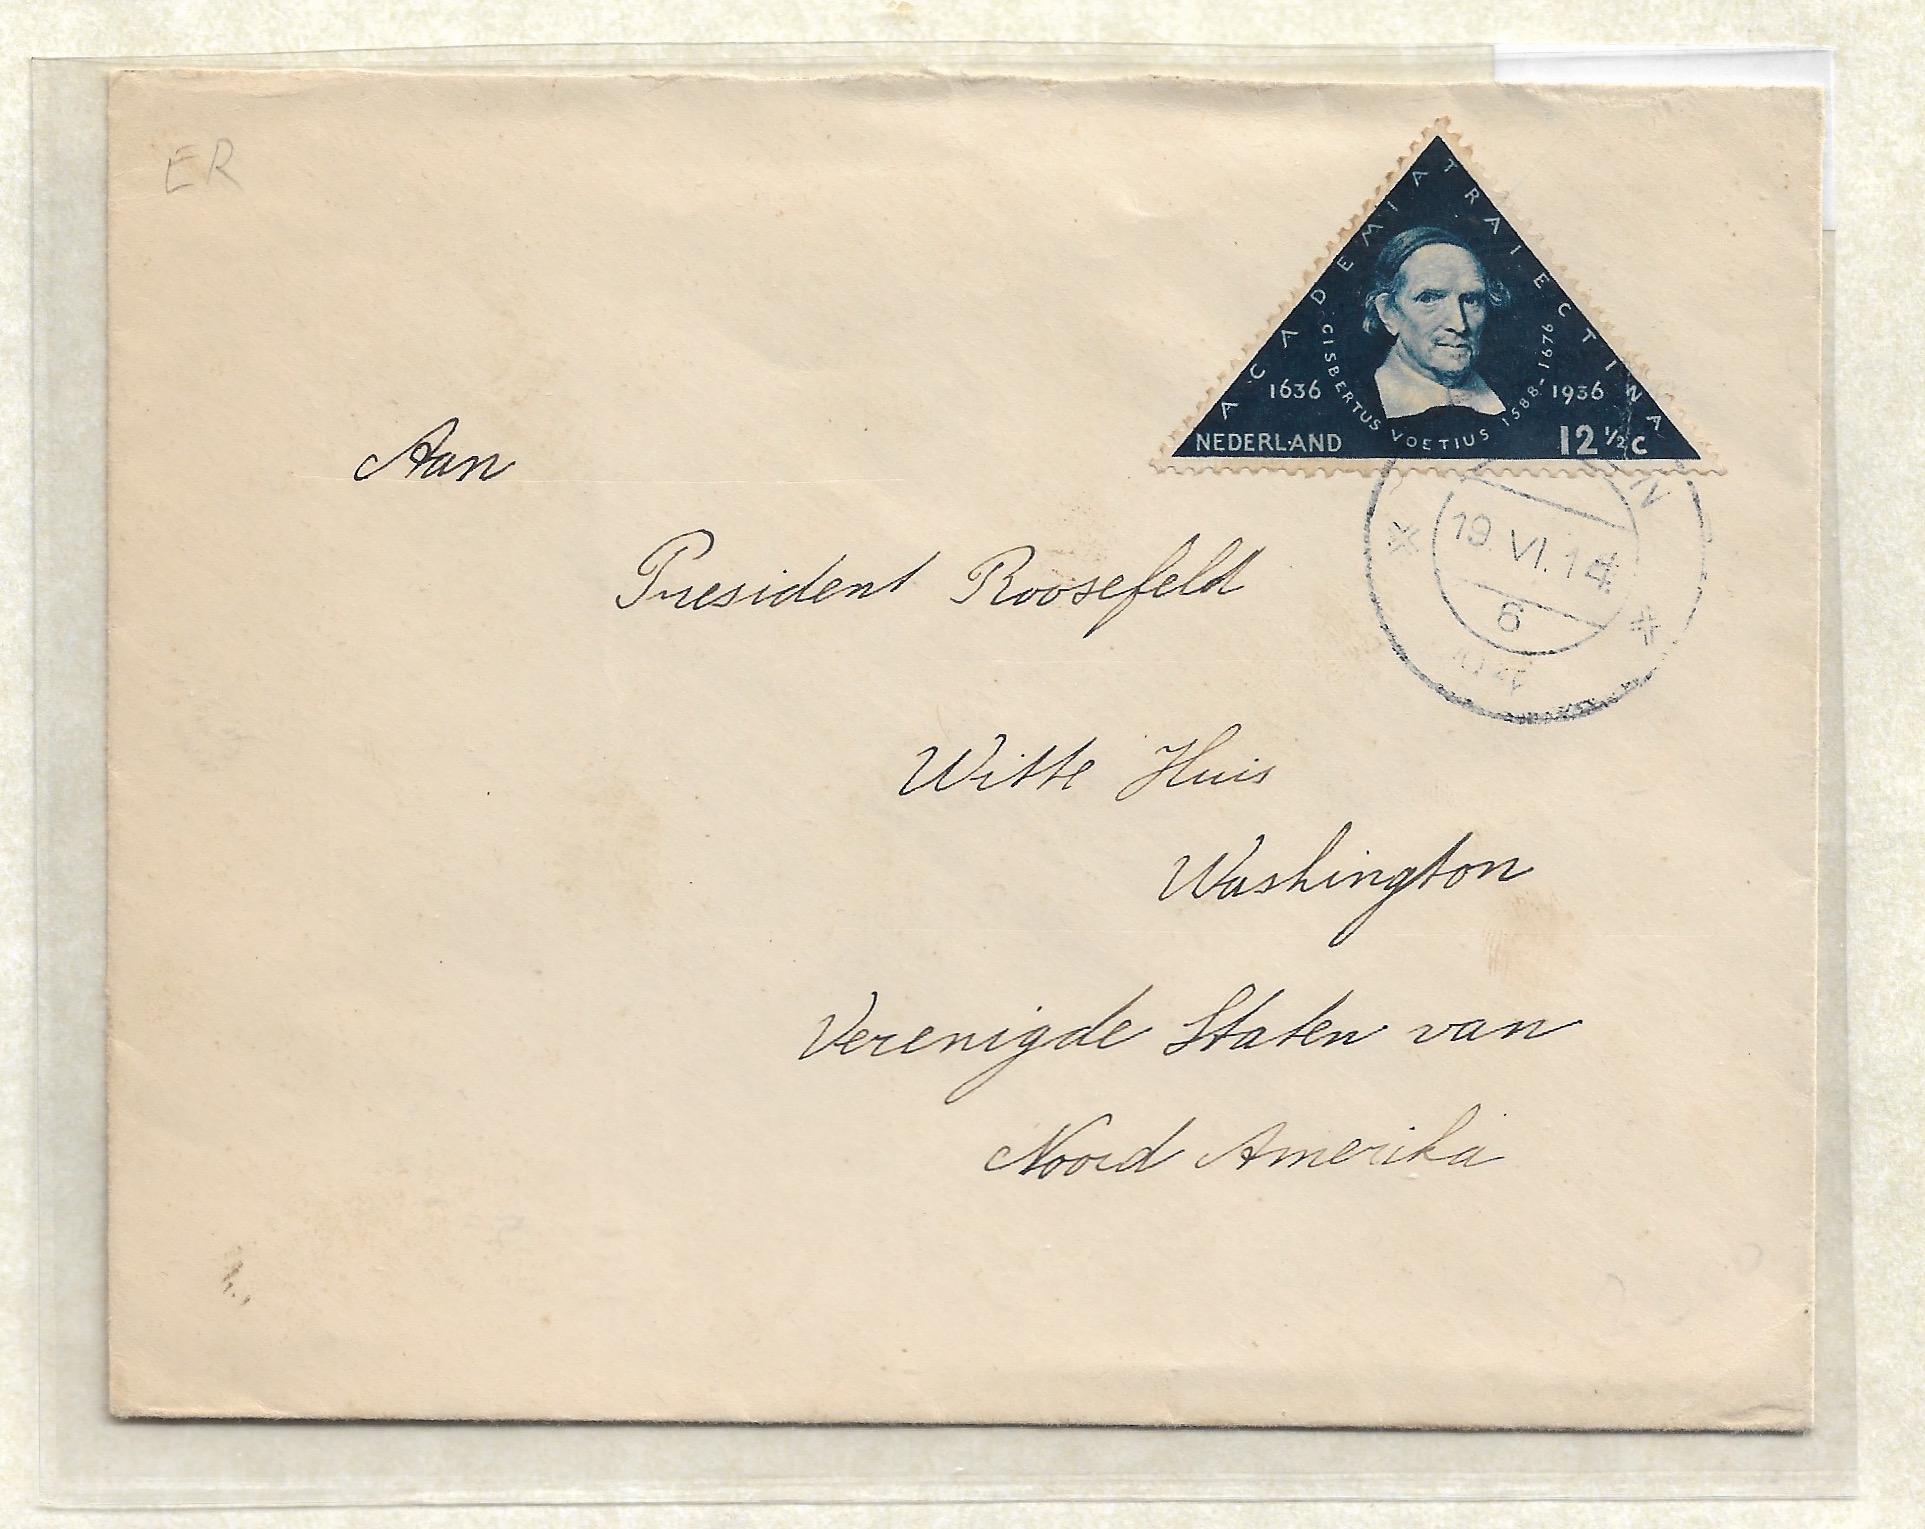 ER
ACADEMIA TRAIECTINA
GISBERTUS VOETIUS 1588-1676
1636 1936
NEDERLAND 12 ½ c
Aan
President Roosefeld
19.VI.14
6
Witte Huis
Washington
Verenigde Staten van
Noord Amerika